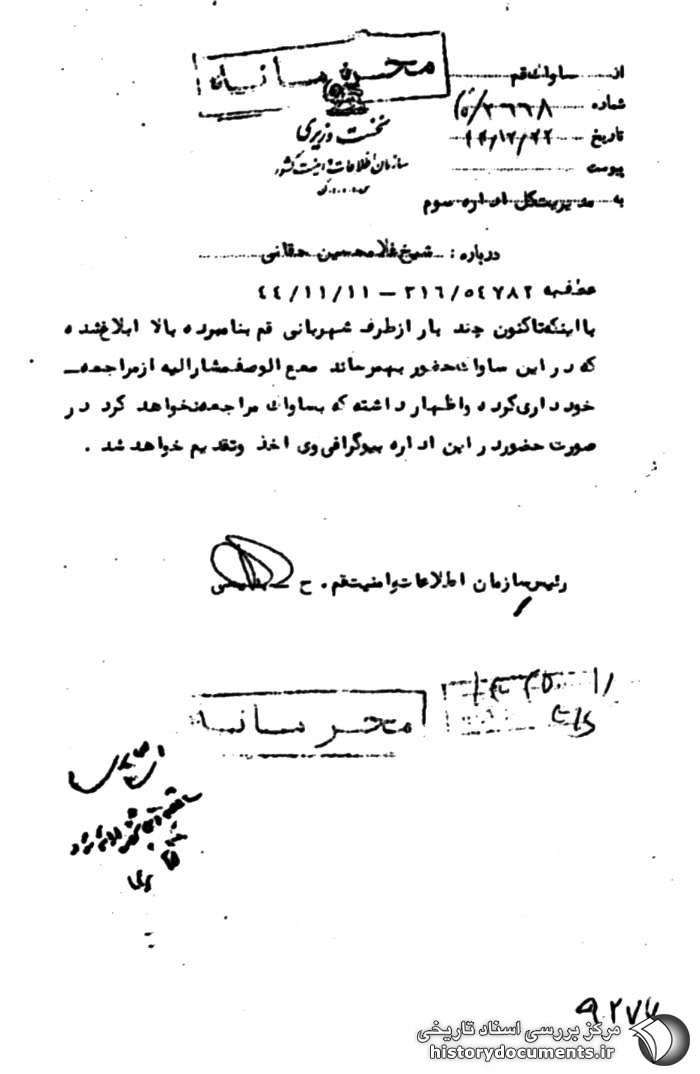 محرمانه
نخست وزیری
سازمان اطلاعات و امنیت کشور
س.ا.و.ا.ک
از ساواک قم
شماره
تاریخ ۴۴/۱۲/۲۲
پیوست
به مدیریت کل اداره سوم
درباره : شیخ غلامحسین حقانی
عطف به ۳۱۶/۵۴۷۸۲ – ۴۴/۱۱/۱۱
با اینکه تاکنون چند بار از طرف شهربانی قم بنامبرده بالا ابلاغ شده
که در این ساواک حضور بهمرساند معع الوصف مشارالیه از مراجعه
خودداری کرده و اظهار داشته که بساواک مراجعه نخواهد کرد در
صورت حضور در این اداره بیوگرافی وی اخذ و تقدیم خواهد شد .
رئیس سازمان اطلاعات و امنیت قم . ح –
محرمانه
۹۲۷۷
مرکز بررسی اسناد تاریخی
historydocuments.ir